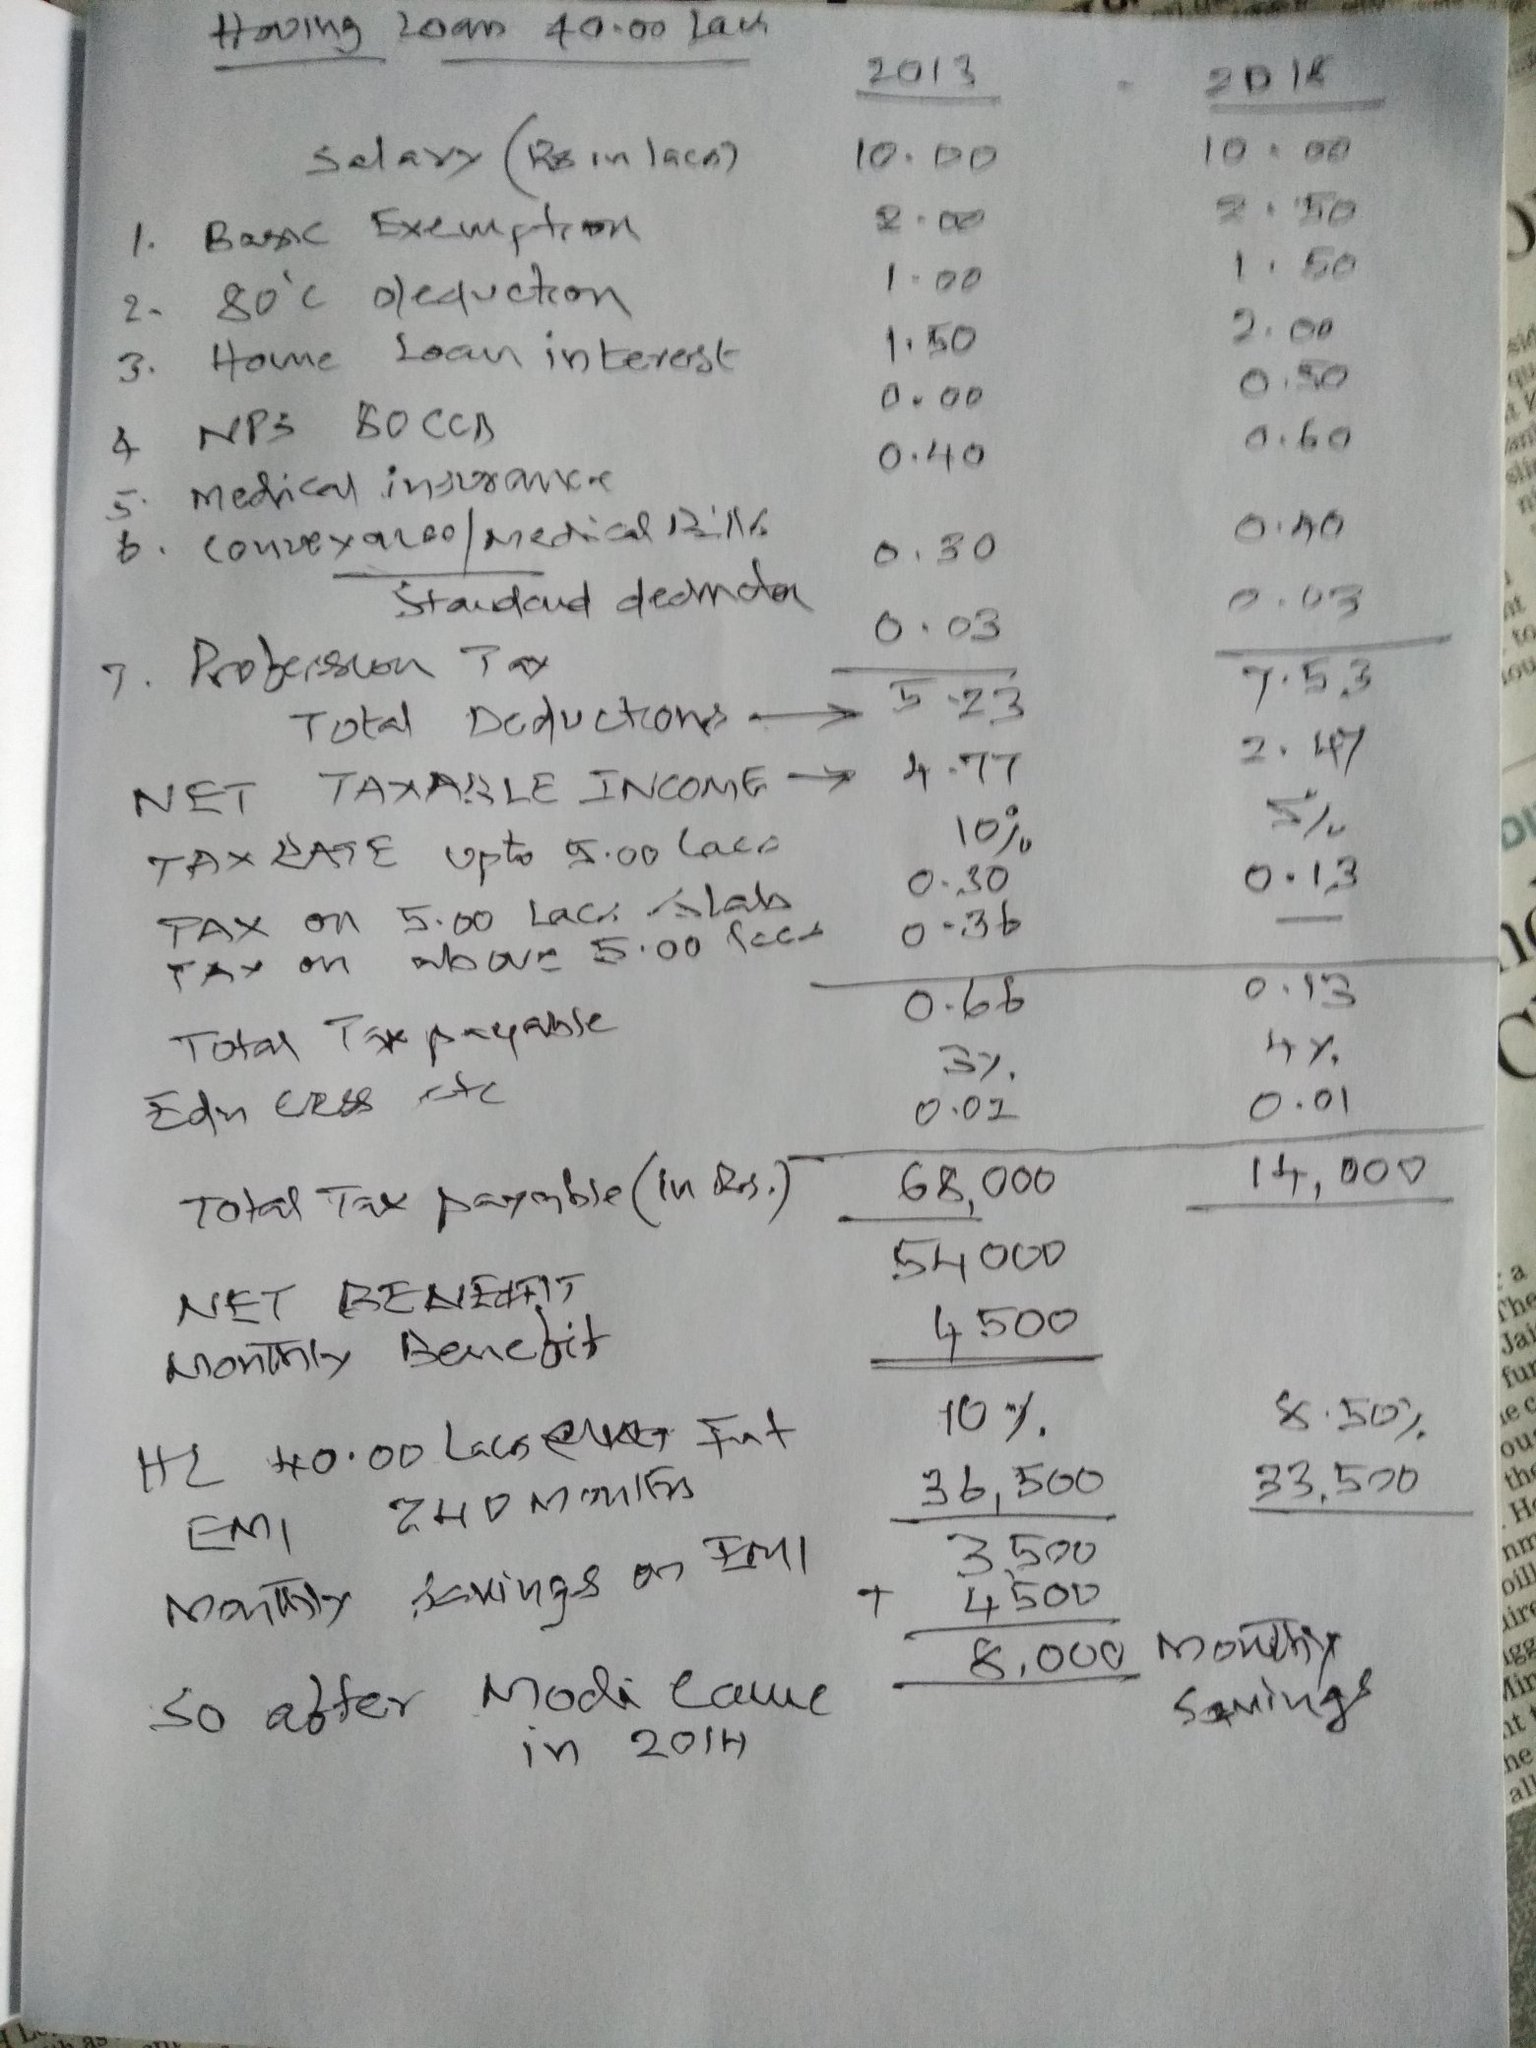 Having Loan 40.00 Lacs
2013 - 2018
Salary (Rs in lacs) 10.00 10.00
1. Basic Exemption 2.00 2.50
2. 80'C deduction 1.00 1.50
3. Home Loan interest 1.50 2.00
4 NPS 80CCD 0.00 0.50
5. Medical insurance 0.40 0.60
6. Conveyance/Medical Bills 0.30 0.40
Standard deduction
7. Profession Tax 0.03 0.03
Total Deductions → 5.23 7.53
NET TAXABLE INCOME → 4.77 2.47
TAX RATE upto 5.00 Lacs 10% 5%
TAX on 5.00 Lacs slab 0.30 0.13
TAX on above 5.00 lacs 0.36 —
Total Tax payable 0.66 0.13
Edn cess etc 3% 4%
0.02 0.01
Total Tax payable (in Rs.) 68,000 14,000
NET BENEFIT 54000
Monthly Benefit 4500
HL 40.00 Lacs Int 10% 8.50%
EMI 240 Months 36,500 33,500
Monthly Savings on EMI 3,500
+ 4500
8,000 Monthly Savings
So after Modi came
in 2014